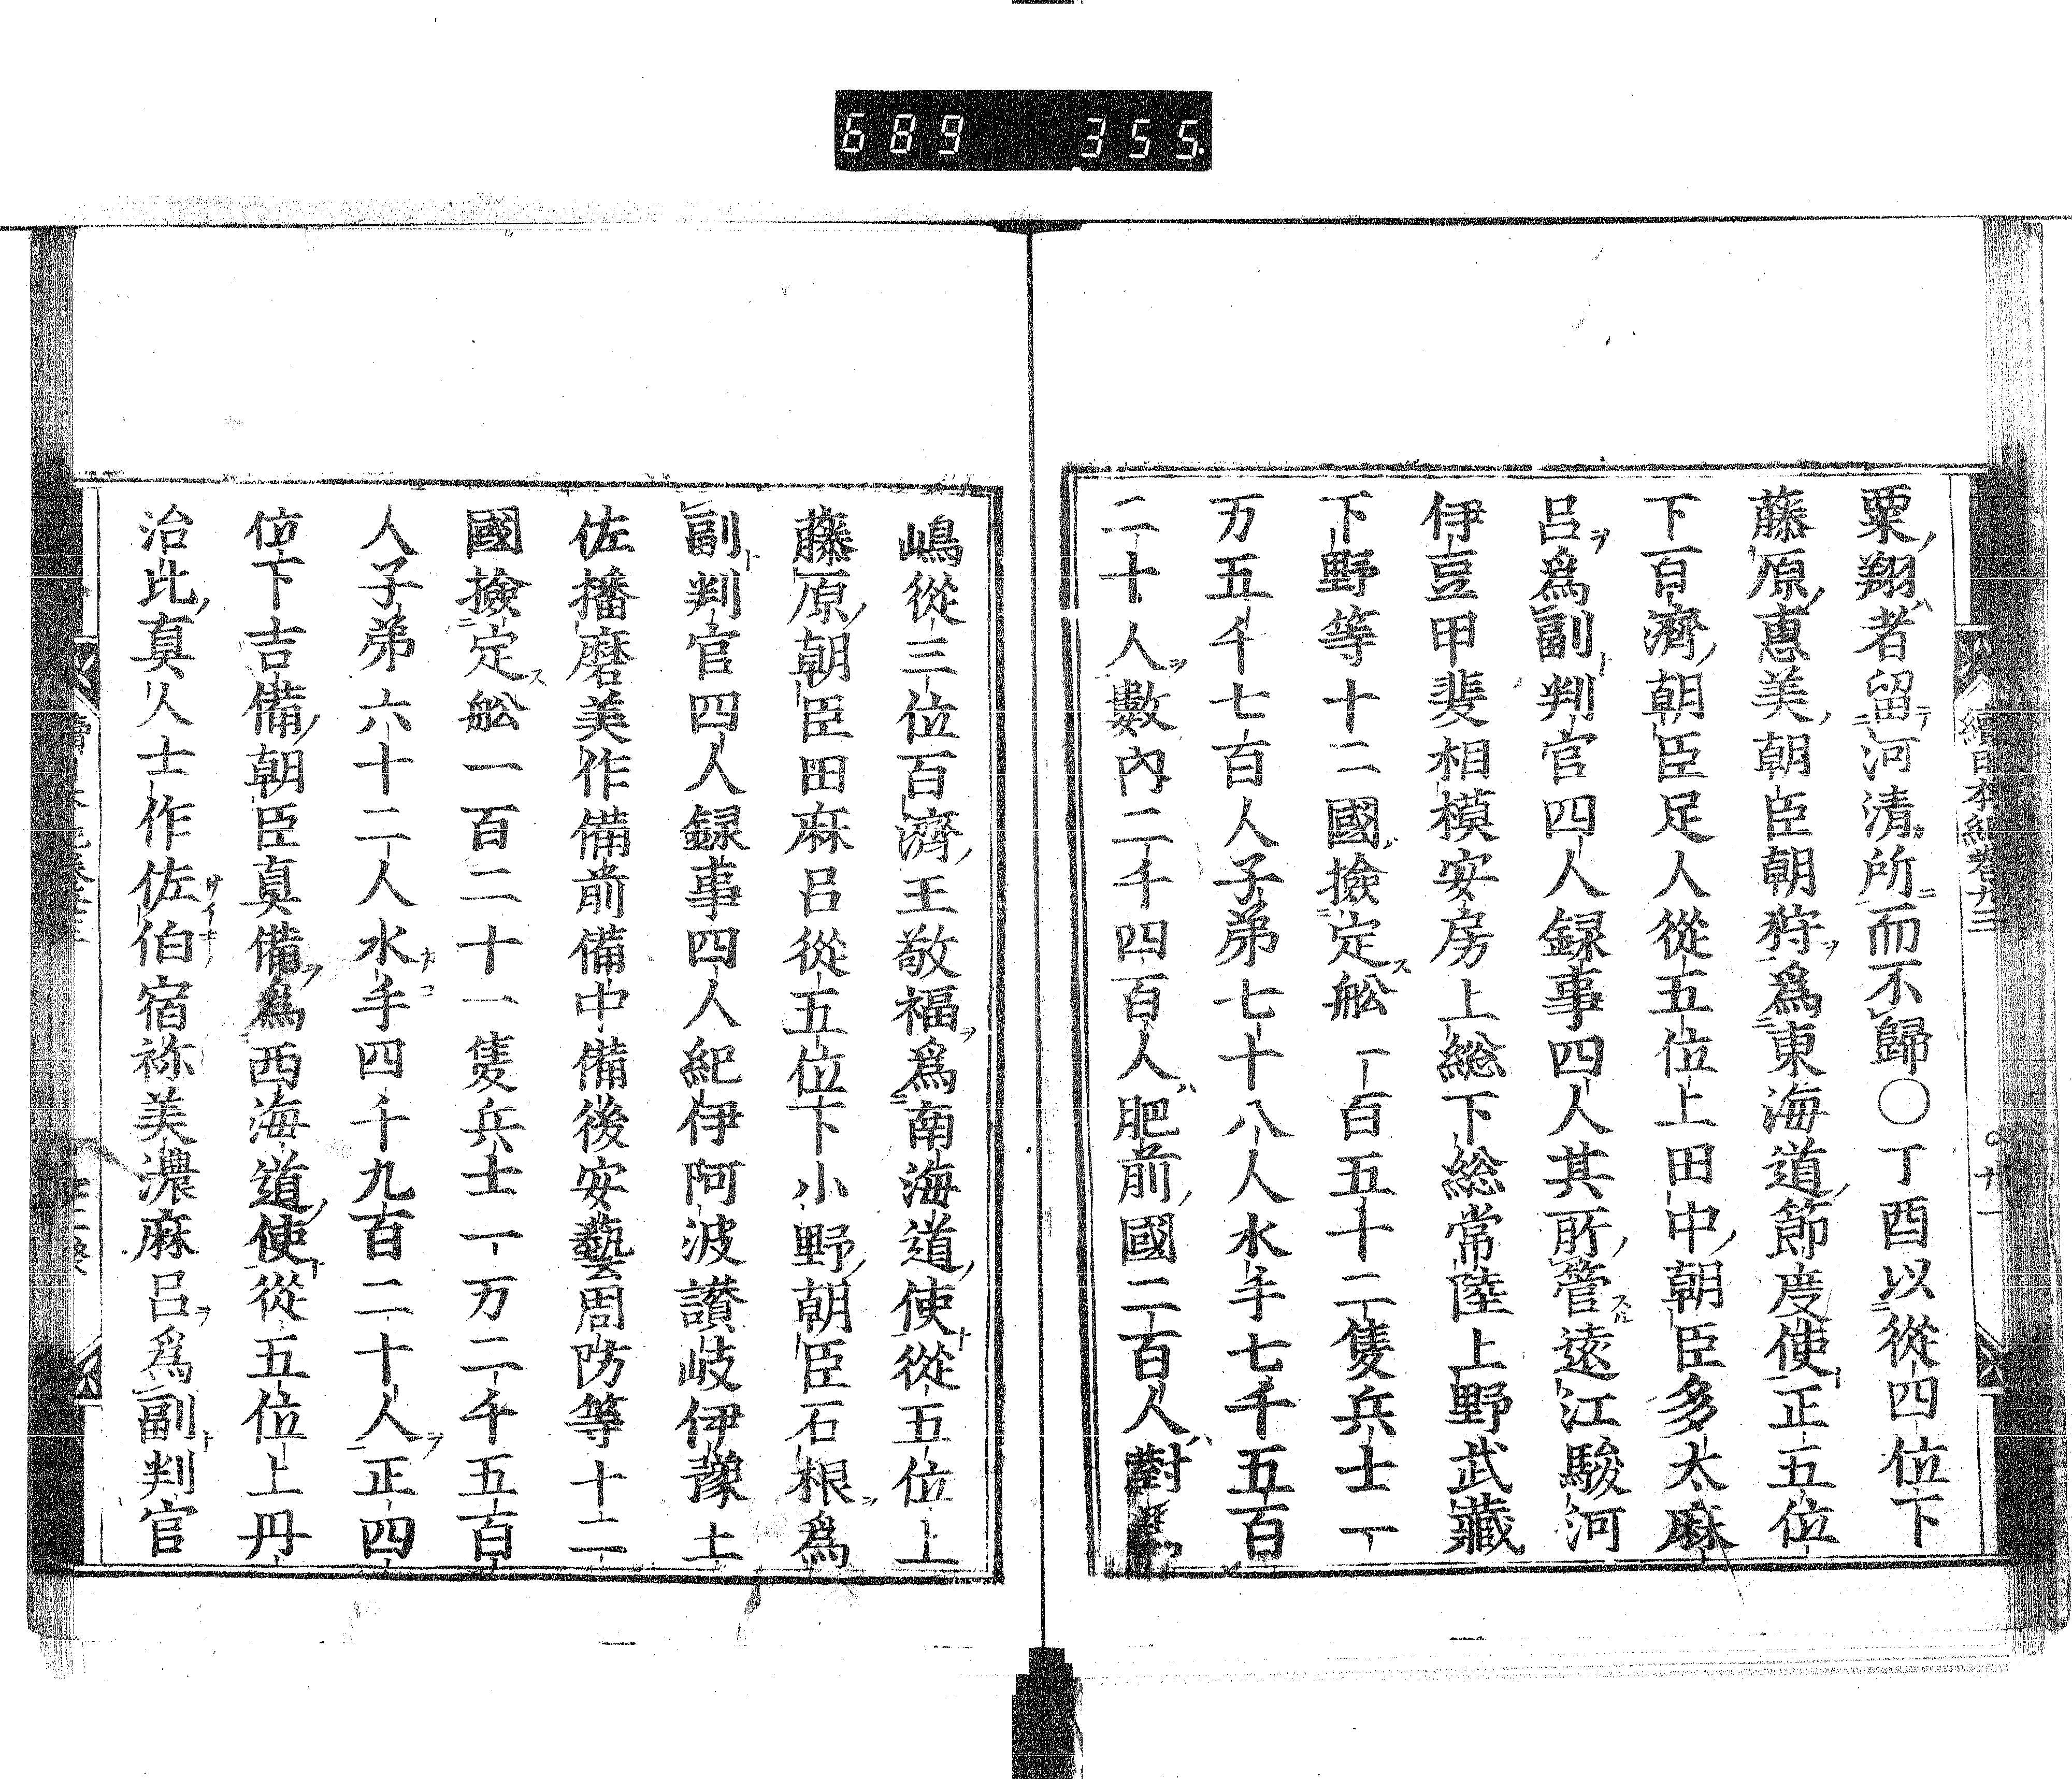 689 355
續日本紀卷廿三
十一
粟翔者留河清所而不歸〇丁酉以從四位下
藤原惠美朝臣朝狩爲東海道節度使正五位
下百濟朝臣足人從五位上田中朝臣多太麻
呂爲副判官四人録事四人其所管遠江駿河
伊豆甲斐相模安房上総下総常陸上野武藏
下野等十二國撿定舩一百五十二隻兵士一
万五千七百人子弟七十八人水手七千五百
二十人數內二千四百人肥前國二百人對馬
嶋從三位百濟王敬福爲南海道使從五位上
藤原朝臣田麻呂從五位下小野朝臣石根爲
副判官四人録事四人紀伊阿波讃岐伊豫土
佐播磨美作備前備中備後安藝周防等十二
國撿定舩一百二十一隻兵士一万二千五百
人子弟六十二人水手四千九百二十人正四
位下吉備朝臣真備爲西海道使從五位上丹
治比真人士作佐伯宿祢美濃麻呂爲副判官